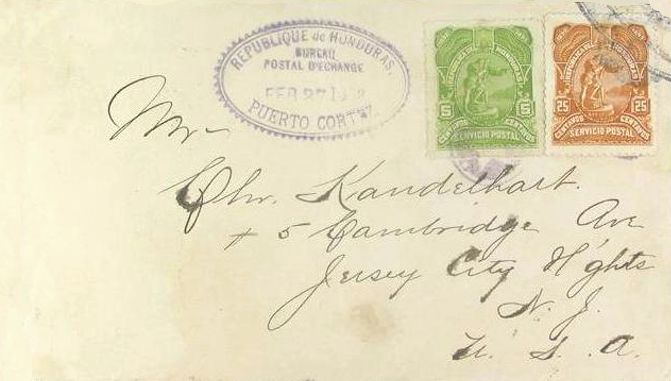 REPUBLIQUE de HONDURAS
BUREAU
POSTAL D'ECHANGE
FEB 27
PUERTO CORTEZ
REPUBLICA DE HONDURAS
5 5
CENTAVOS CENTAVOS
SERVICIO POSTAL
REPUBLICA DE HONDURAS
25 25
CENTAVOS CENTAVOS
SERVICIO POSTAL
Mr
Chr. Kandelhart.
5 Cambridge Ave
Jersey City H'ghts
N. J.
U. S. A.